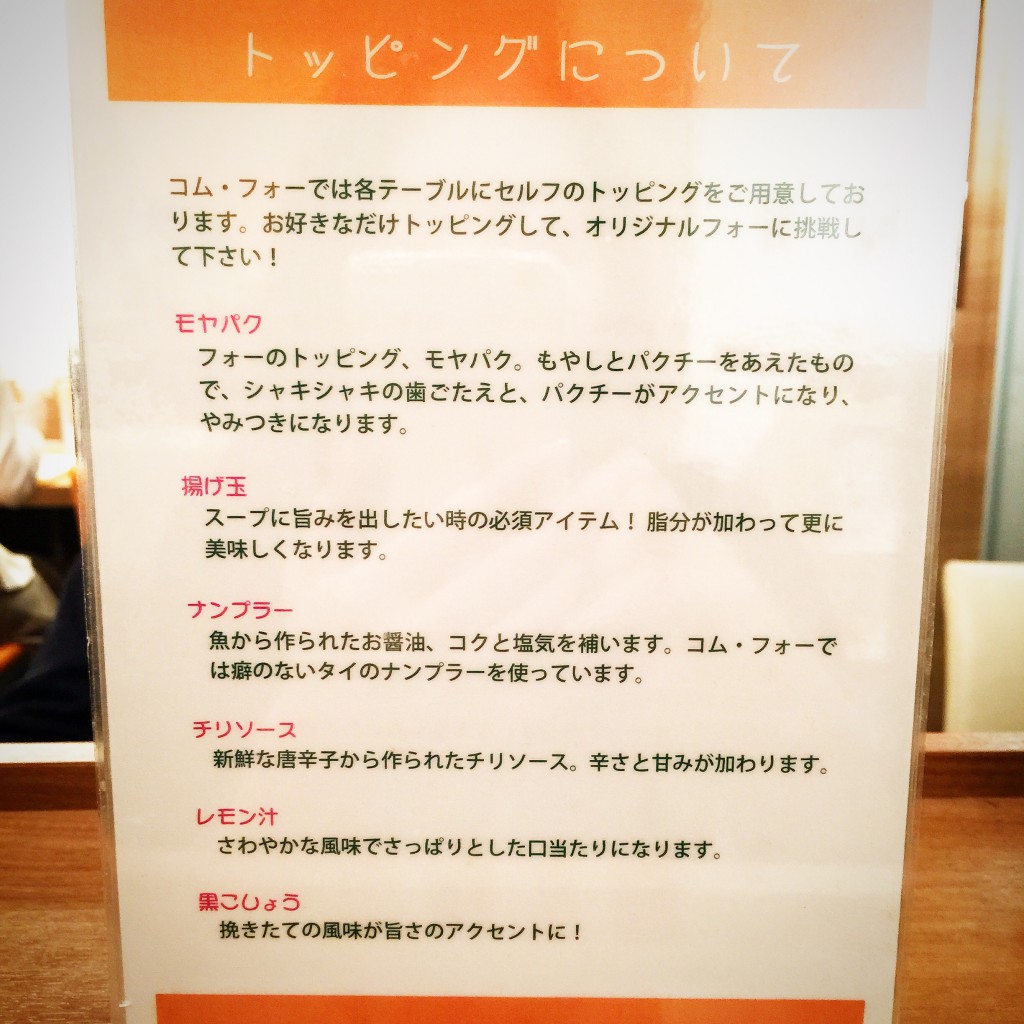 トッピングについて
コム・フォーでは各テーブルにセルフのトッピングをご用意してお
ります。お好きなだけトッピングして、オリジナルフォーに挑戦し
て下さい！
モヤパク
フォーのトッピング、モヤパク。もやしとパクチーをあえたもの
で、シャキシャキの歯ごたえと、パクチーがアクセントになり、
やみつきになります。
揚げ玉
スープに旨みを出したい時の必須アイテム！ 脂分が加わって更に
美味しくなります。
ナンプラー
魚から作られたお醤油、コクと塩気を補います。コム・フォーで
は癖のないタイのナンプラーを使っています。
チリソース
新鮮な唐辛子から作られたチリソース。辛さと甘みが加わります。
レモン汁
さわやかな風味でさっぱりとした口当たりになります。
黒こしょう
挽きたての風味が旨さのアクセントに！